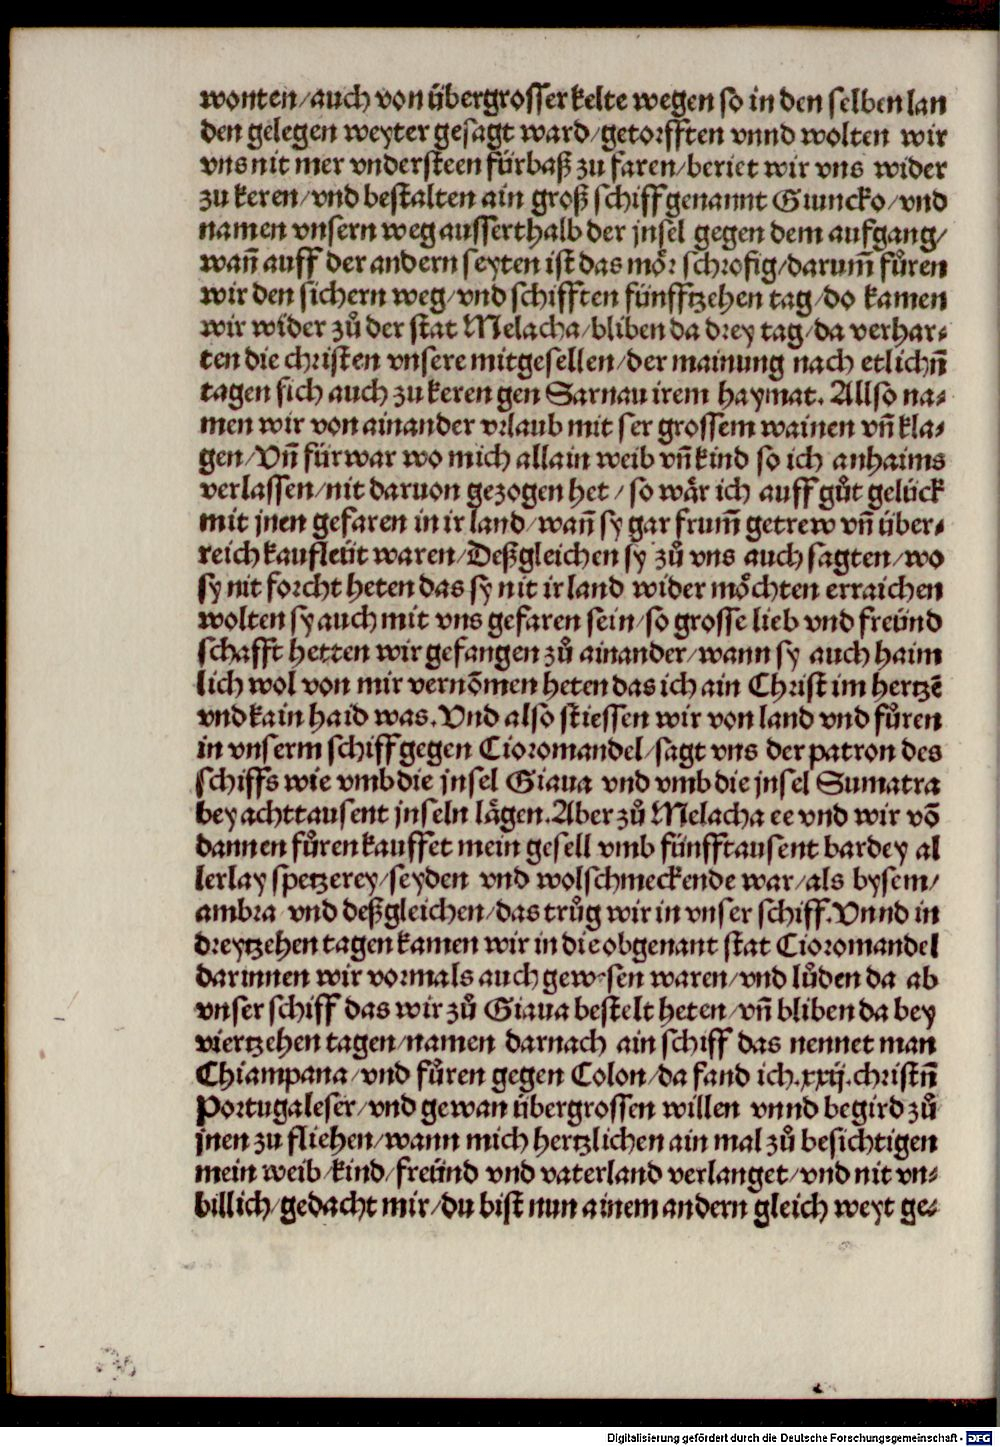 wonten/auch von übergrosser kelte wegen so in den selben lan
den gelegen weyter gesagt ward/getorfften vnnd wolten wir
vns nit mer vndersteen fürbaß zu faren/beriet wir vns wider
zu keren/vnd bestalten ain groß schiff genannt Giuncko/vnd
namen vnsern weg ausserthalb der jnsel gegen dem aufgang/
wañ auff der andern seyten ist das moͤr schrofig/darum̃ fuͦren
wir den sichern weg/vnd schifften fünfftzehen tag/do kamen
wir wider zuͦ der stat Melacha/bliben da drey tag/da verhar⸗
ten die christen vnsere mitgesellen/der mainung nach etlichñ
tagen sich auch zu keren gen Sarnau irem haymat. Allso na⸗
men wir von ainander vrlaub mit ser grossem wainen vñ kla⸗
gen/Vñ fürwar wo mich allain weib vñ kind so ich anhaims
verlassen/nit daruon gezogen het/so waͤr ich auff guͦt gelück
mit jnen gefaren in ir land/wañ sy gar frum̃ getrew vñ über⸗
reich kaufleüt waren/Deßgleichen sy zuͦ vns auch sagten/wo
sy nit forcht heten das sy nit ir land wider moͤchten erraichen
wolten sy auch mit vns gefaren sein/so grosse lieb vnd freünd
schafft hetten wir gefangen zuͦ ainander/wann sy auch haim
lich wol von mir vernõmen heten das ich ain Christ im hertzẽ
vnd kain haid was. Vnd also stiessen wir von land vnd fuͦren
in vnserm schiff gegen Cioromandel/sagt vns der patron des
schiffs wie vmb die jnsel Giaua vnd vmb die jnsel Sumatra
bey achttausent jnseln laͤgen. Aber zuͦ Melacha ee vnd wir võ
dannen fuͦren kauffet mein gesell vmb fünfftausent bardey al
lerlay spetzerey/seyden vnd wolschmeckende war/als bysem/
ambra vnd deßgleichen/das truͦg wir in vnser schiff. Vnnd in
dreytzehen tagen kamen wir in die obgenant stat Cioromandel
darinnen wir vormals auch gewesen waren/vnd luͦden da ab
vnser schiff das wir zuͦ Giaua bestelt heten/vñ bliben da bey
viertzehen tagen/namen darnach ain schiff das nennet man
Chiampana/vnd fuͦren gegen Colon/da fand ich .xxij. christñ
Portugaleser/vnd gewan übergrossen willen vnnd begird zuͦ
jnen zu fliehen/wann mich hertzlichen ain mal zuͦ besichtigen
mein weib/kind/freünd vnd vaterland verlanget/vnd nit vn⸗
billich/gedacht mir/du bist nun ainem andern gleich weyt ge⸗
Digitalisierung gefördert durch die Deutsche Forschungsgemeinschaft - DFG